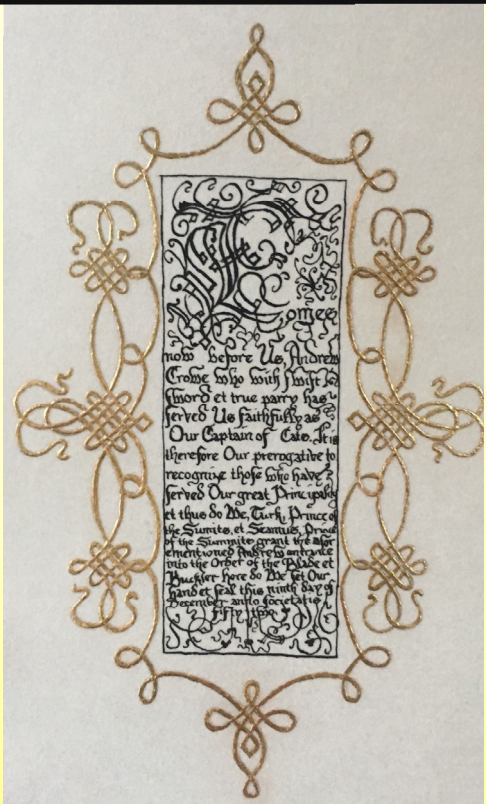 Comes
now before Us, Andrew
Crowe who with swift
sword et true parry has
served Us faithfully as
Our Captain of Cats. It is
therefore Our prerogative to
recognize those who have
served Our great Principality
et thus do We, Turk, Prince of
the Sumits, et Seamus, Prince
of the Summits grant the afor
ementioned Andrew entrance
into the Order of the Blade et
Buckler here do We set Our
hand et seal this ninth day of
December anno societatis
fifty two